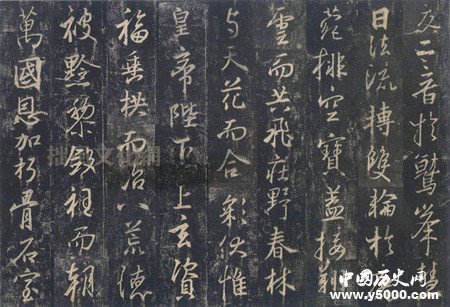 交二音於鷲峯慧
日法流轉雙輪於
菀排空寶蓋接翔
雲而共飛莊野春林
與天花而合彩伏惟
皇帝陛下上玄資
福垂拱而治八荒德
被黔黎斂衽而朝
萬國恩加朽骨石室
中国历史网
www.y5000.com